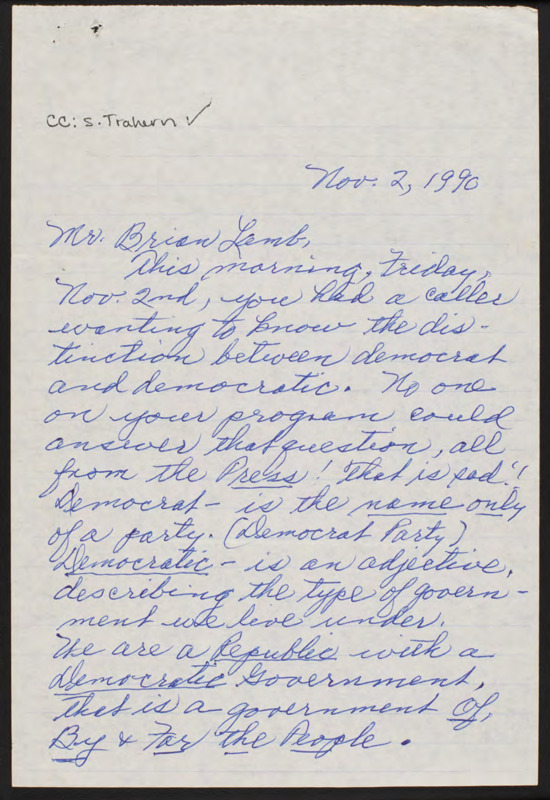 CC: S. Trahern ✓
Nov. 2, 1990
Mr. Brian Lamb,
This morning, Friday,
Nov. 2nd, you had a caller
wanting to know the dis-
tinction between democrat
and democratic. No one
on your program could
answer that question, all
from the Press! That is sad!!
Democrat - is the name only
of a party. (Democrat Party)
Democratic - is an adjective,
describing the type of govern-
ment we live under.
We are a Republic with a
Democratic Government,
that is a government Of,
By & For the People.